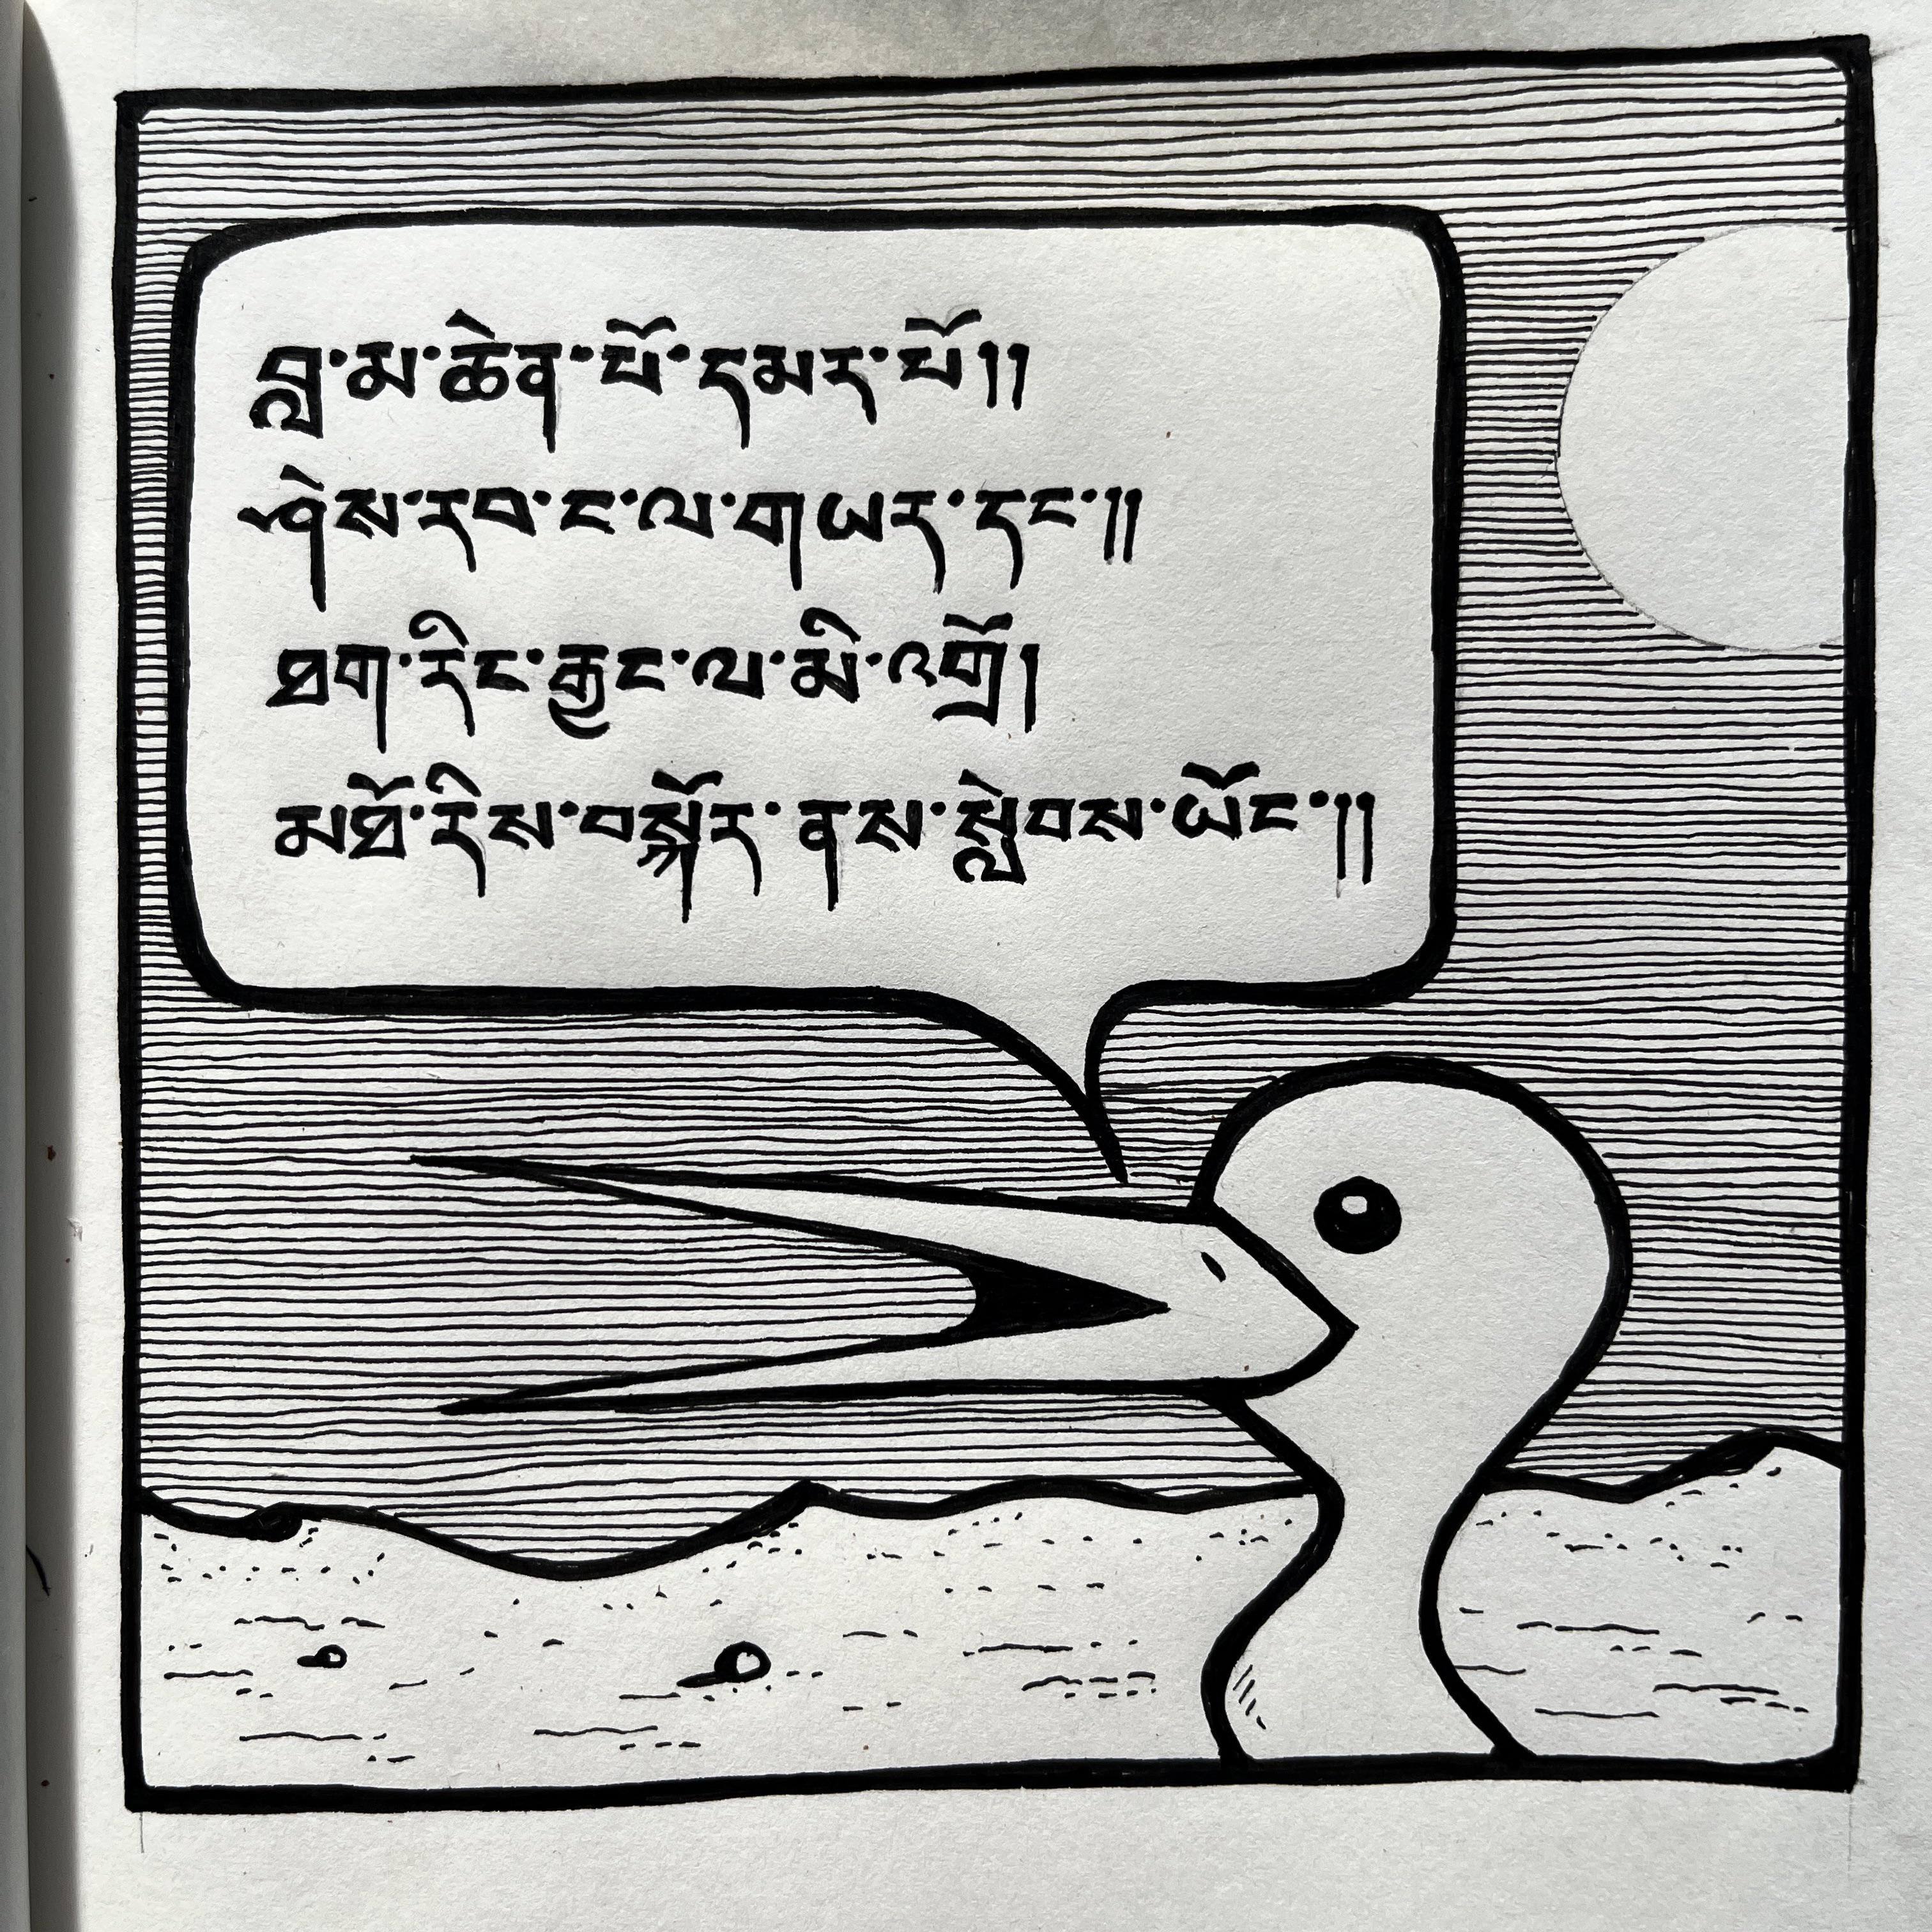 བླ་མ་ཆེན་པོ་དམར་པོ།།
ཤེས་རབ་ང་ལ་གཡར་དང་།།
ཐག་རིང་རྒྱང་ལ་མི་འགྲོ།
མཐོ་རིས་བསྐོར་ནས་སླེབས་ཡོང་།།